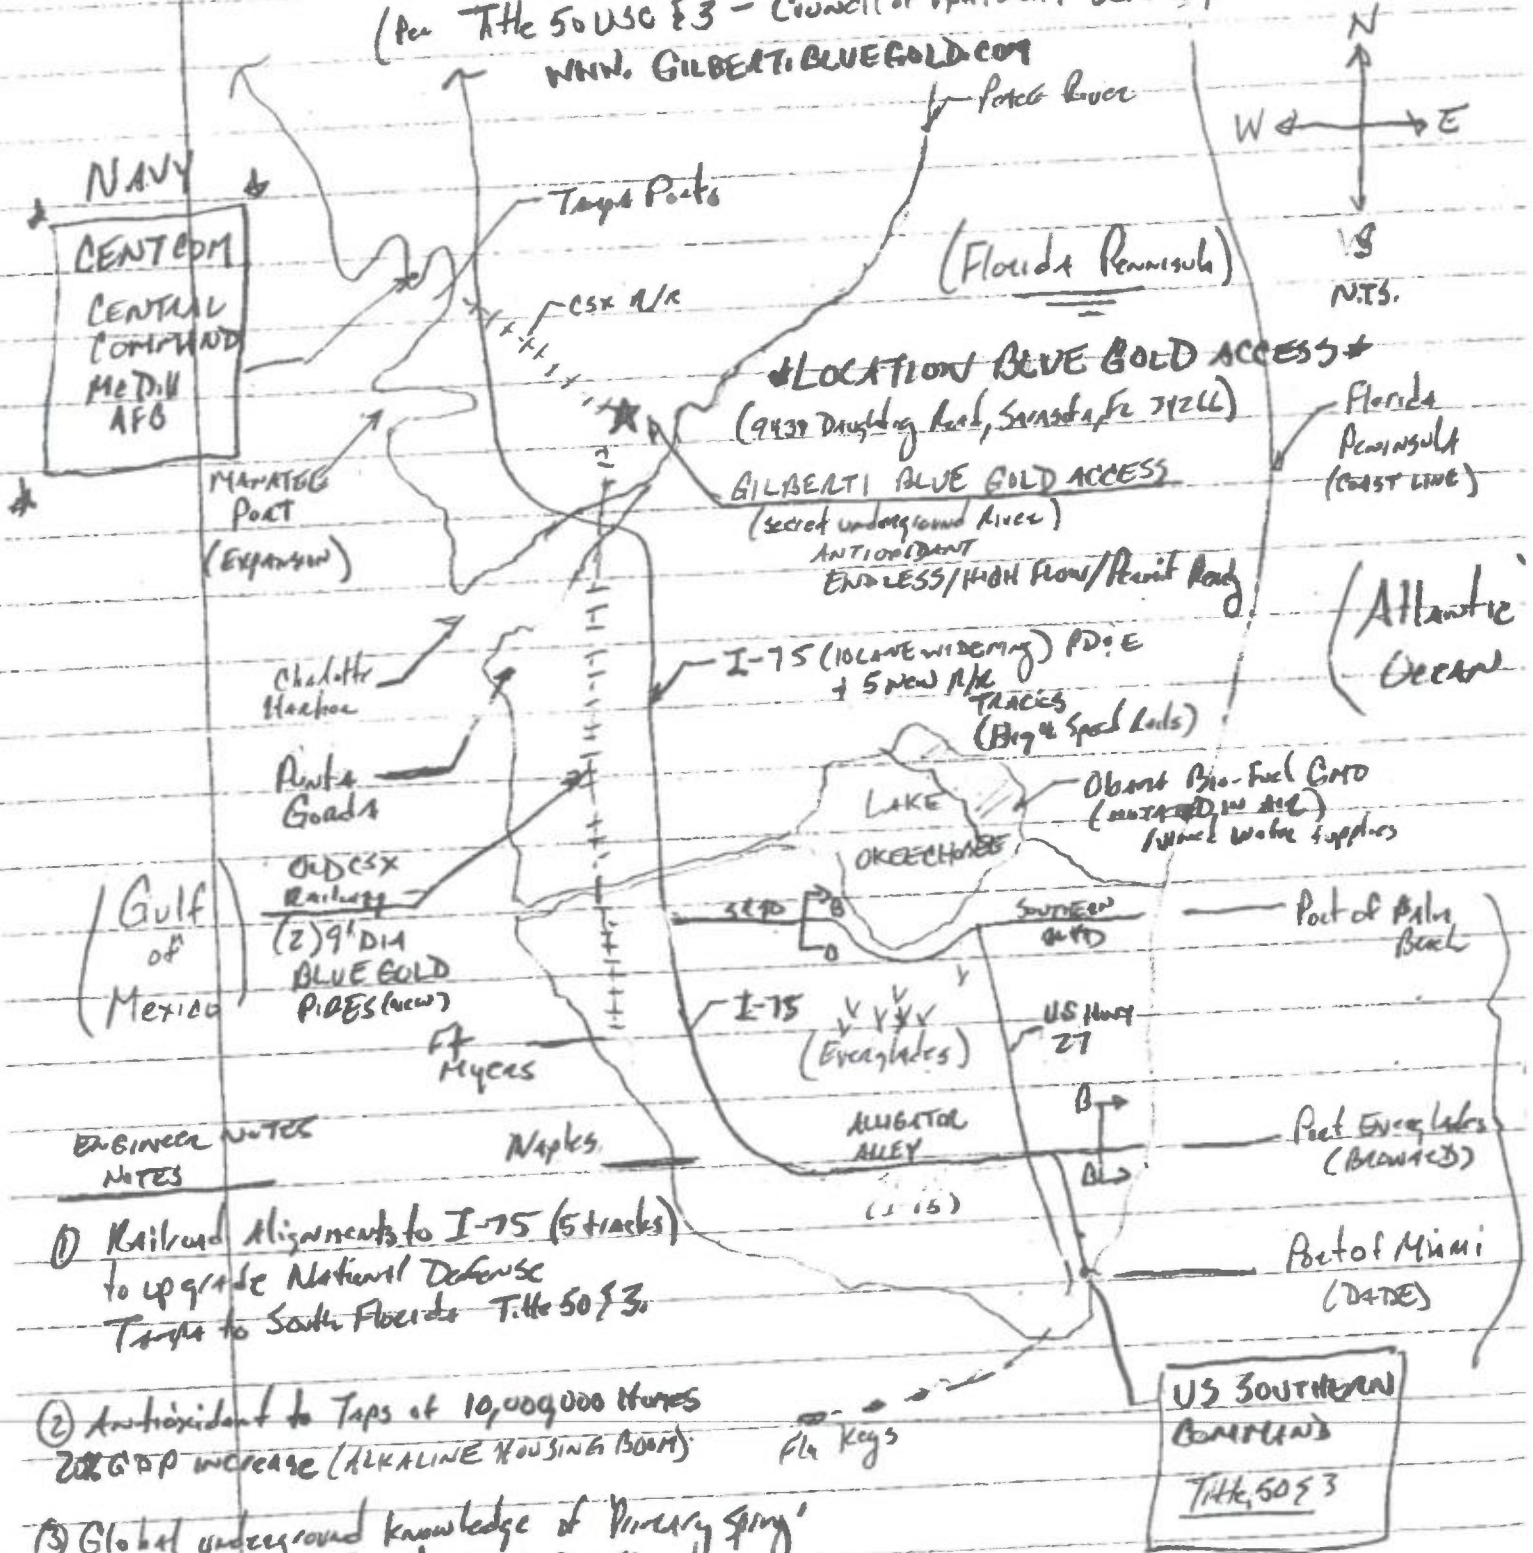 (Per Title 50 USC § 3 - Council of
WWW. GILBERTIBLUEGOLD.COM
Peace River
N
W E
S
N.T.S.
NAVY
CENTCOM
CENTRAL
COMMAND
McDill
AFB
Tampa Ports
CSX R/R
(Florida Peninsula)
*LOCATION BLUE GOLD ACCESS*
(9438 Daughtry Road, Sarasota, FL 34266)
Florida
Peninsula
(COAST LINE)
MANATEE
Port
(EXPANSION)
GILBERTI BLUE GOLD ACCESS
(secret underground River)
ANTIOXIDANT
ENDLESS/HIGH FLOW/Permit Ready
(Atlantic
OCEAN
Charlotte
Harbor
I-75 (10 LANE WIDENING) PD&E
+ 5 NEW R/R
TRACKS
Speed Rails)
Punta
Gorda
LAKE
OKEECHOBEE
Obama Bio-Fuel GMO
IN AIR)
Water Supplies
(Gulf
of
Mexico)
OLD CSX
Railway
(2) 9' DIA
BLUE GOLD
PIPES (NEW)
SR 80
B
B
SOUTHERN
BLVD
Port of Palm
Beach
I-75
(Everglades)
US Hwy
27
Ft
Myers
ENGINEER NOTES
NOTES
Naples
ALLIGATOR
ALLEY
(I-75)
B
B
Port Everglades
(BROWARD)
① Railroad Alignments to I-75 (5 tracks)
to upgrade National Defense
Tampa to South Florida Title 50 § 3.
Port of Miami
(DADE)
② Antioxidant to Taps of 10,000,000 Homes
20% GDP increase (ALKALINE HOUSING BOOM)
Fla Keys
US SOUTHERN
COMMAND
Title 50 § 3
③ Global underground knowledge of 'Primary Spring'